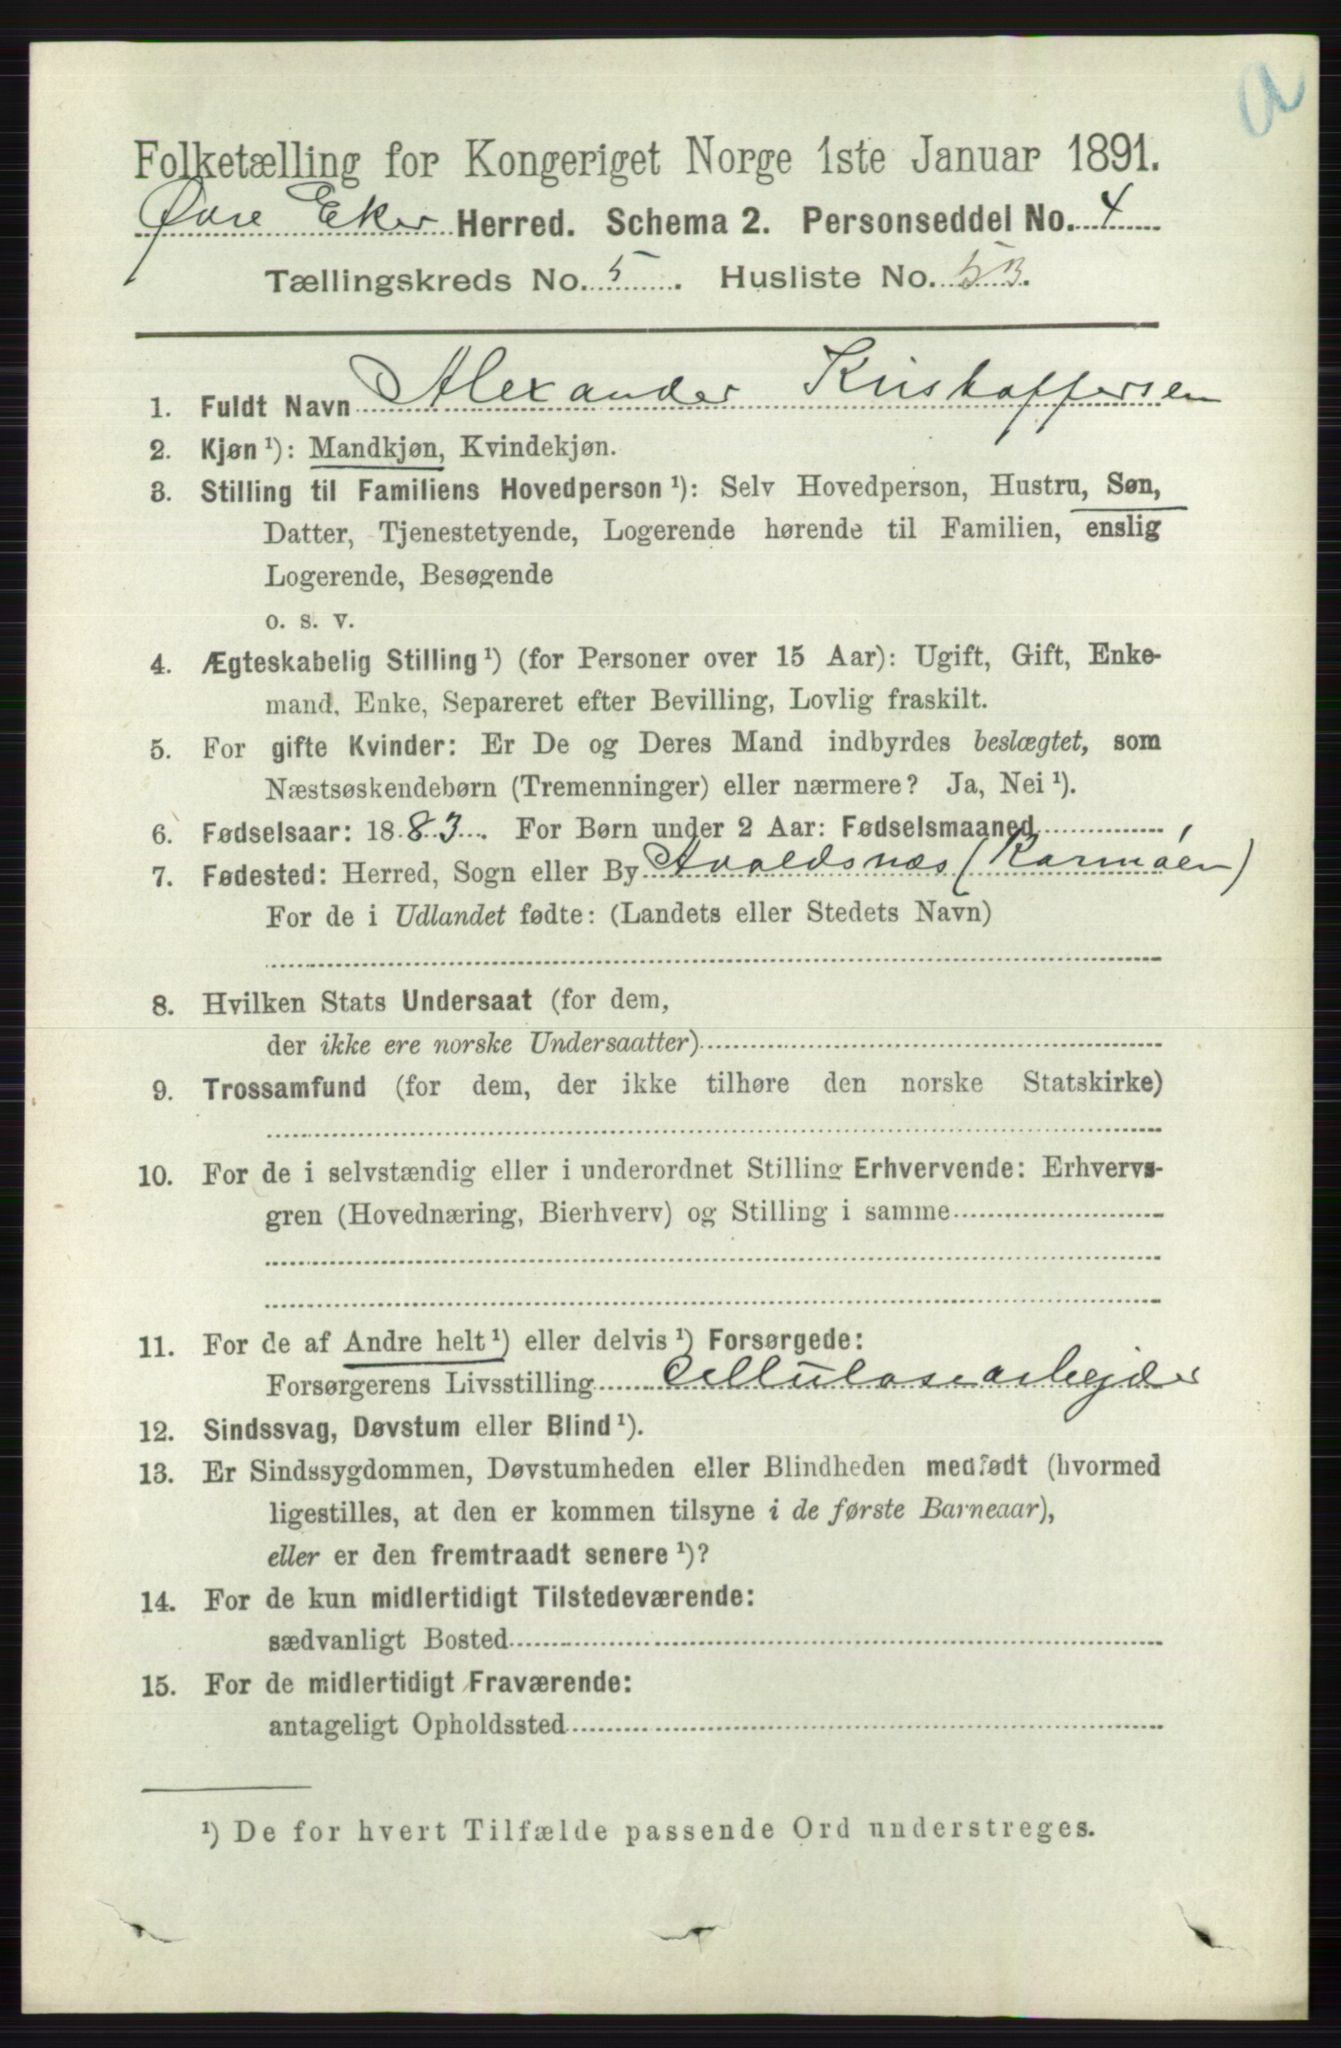 a
Folketælling for Kongeriget Norge 1ste Januar 1891.
Øvre Eker Herred. Schema 2. Personseddel No. 4
Tællingskreds No. 5. Husliste No. 53.
1. Fuldt Navn Alexander Kristoffersen
2. Kjøn ¹): Mandkjøn, Kvindekjøn.
3. Stilling til Familiens Hovedperson ¹): Selv Hovedperson, Hustru, Søn,
Datter, Tjenestetyende, Logerende hørende til Familien, enslig
Logerende, Besøgende
o. s. v.
4. Ægteskabelig Stilling ¹) (for Personer over 15 Aar): Ugift, Gift, Enke-
mand, Enke, Separeret efter Bevilling, Lovlig fraskilt.
5. For gifte Kvinder: Er De og Deres Mand indbyrdes beslægtet, som
Næstsøskendebørn (Tremenninger) eller nærmere? Ja, Nei ¹).
6. Fødselsaar: 1883. For Børn under 2 Aar: Fødselsmaaned
7. Fødested: Herred, Sogn eller By Avaldsnæs (Karmøen)
For de i Udlandet fødte: (Landets eller Stedets Navn)
8. Hvilken Stats Undersaat (for dem,
der ikke ere norske Undersaatter)
9. Trossamfund (for dem, der ikke tilhøre den norske Statskirke)
10. For de i selvstændig eller i underordnet Stilling Erhvervende: Erhvervs-
gren (Hovednæring, Bierhverv) og Stilling i samme
11. For de af Andre helt ¹) eller delvis ¹) Forsørgede:
Forsørgerens Livsstilling Cellulosearbejder
12. Sindssvag, Døvstum eller Blind ¹).
13. Er Sindssygdommen, Døvstumheden eller Blindheden medfødt (hvormed
ligestilles, at den er kommen tilsyne i de første Barneaar),
eller er den fremtraadt senere ¹)?
14. For de kun midlertidigt Tilstedeværende:
sædvanligt Bosted
15. For de midlertidigt Fraværende:
antageligt Opholdssted
¹) De for hvert Tilfælde passende Ord understreges.